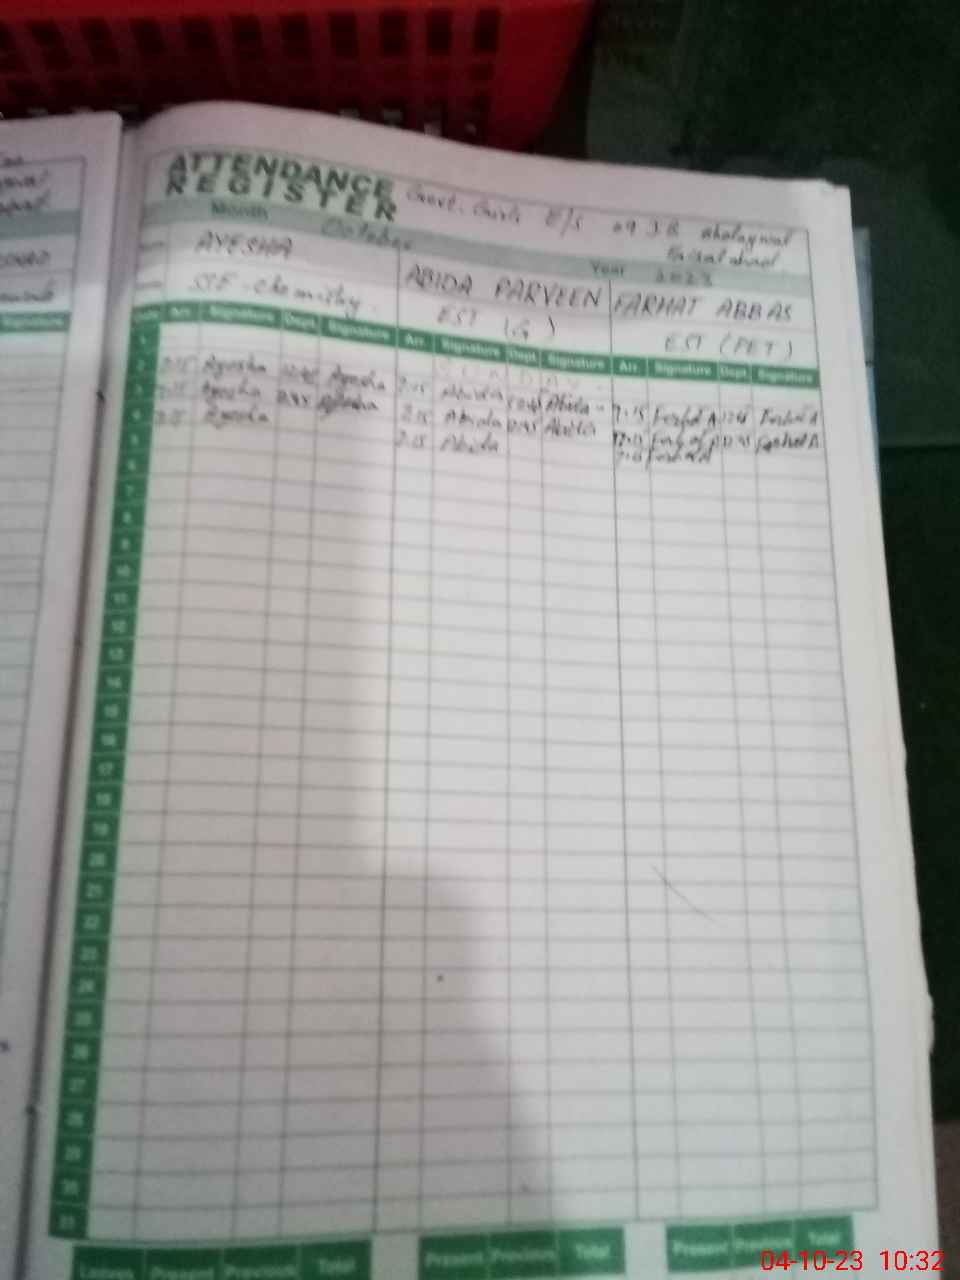 ATTENDANCE
REGISTER
Govt. Girls E/S 09 J.B
Faisalabad
Month October Year 2023
AYESHA ABIDA PARVEEN FARHAT ABBAS
SSE-chemistry. EST (G) EST (PET)
Arr. Signature Dept. Signature Arr. Signature Dept. Signature Arr. Signature Dept. Signature
1 Sunday
2 7:15 Ayesha 12:45 Ayesha 7:15 Abida 12:45 Abida 7:15 Farhat A 12:45 Farhat A
3 7:15 Ayesha 12:45 Ayesha 7:15 Abida 12:45 Abida 7:15 Farhat A 12:45 Farhat A
4 7:15 Ayesha 7:15 Abida 7:15 Farhat A
5
6
7
8
9
10
11
12
13
14
15
16
17
18
19
20
21
22
23
24
25
26
27
28
29
30
31
Present Previous Total Present Previous Total Present Previous Total
04-10-23 10:32